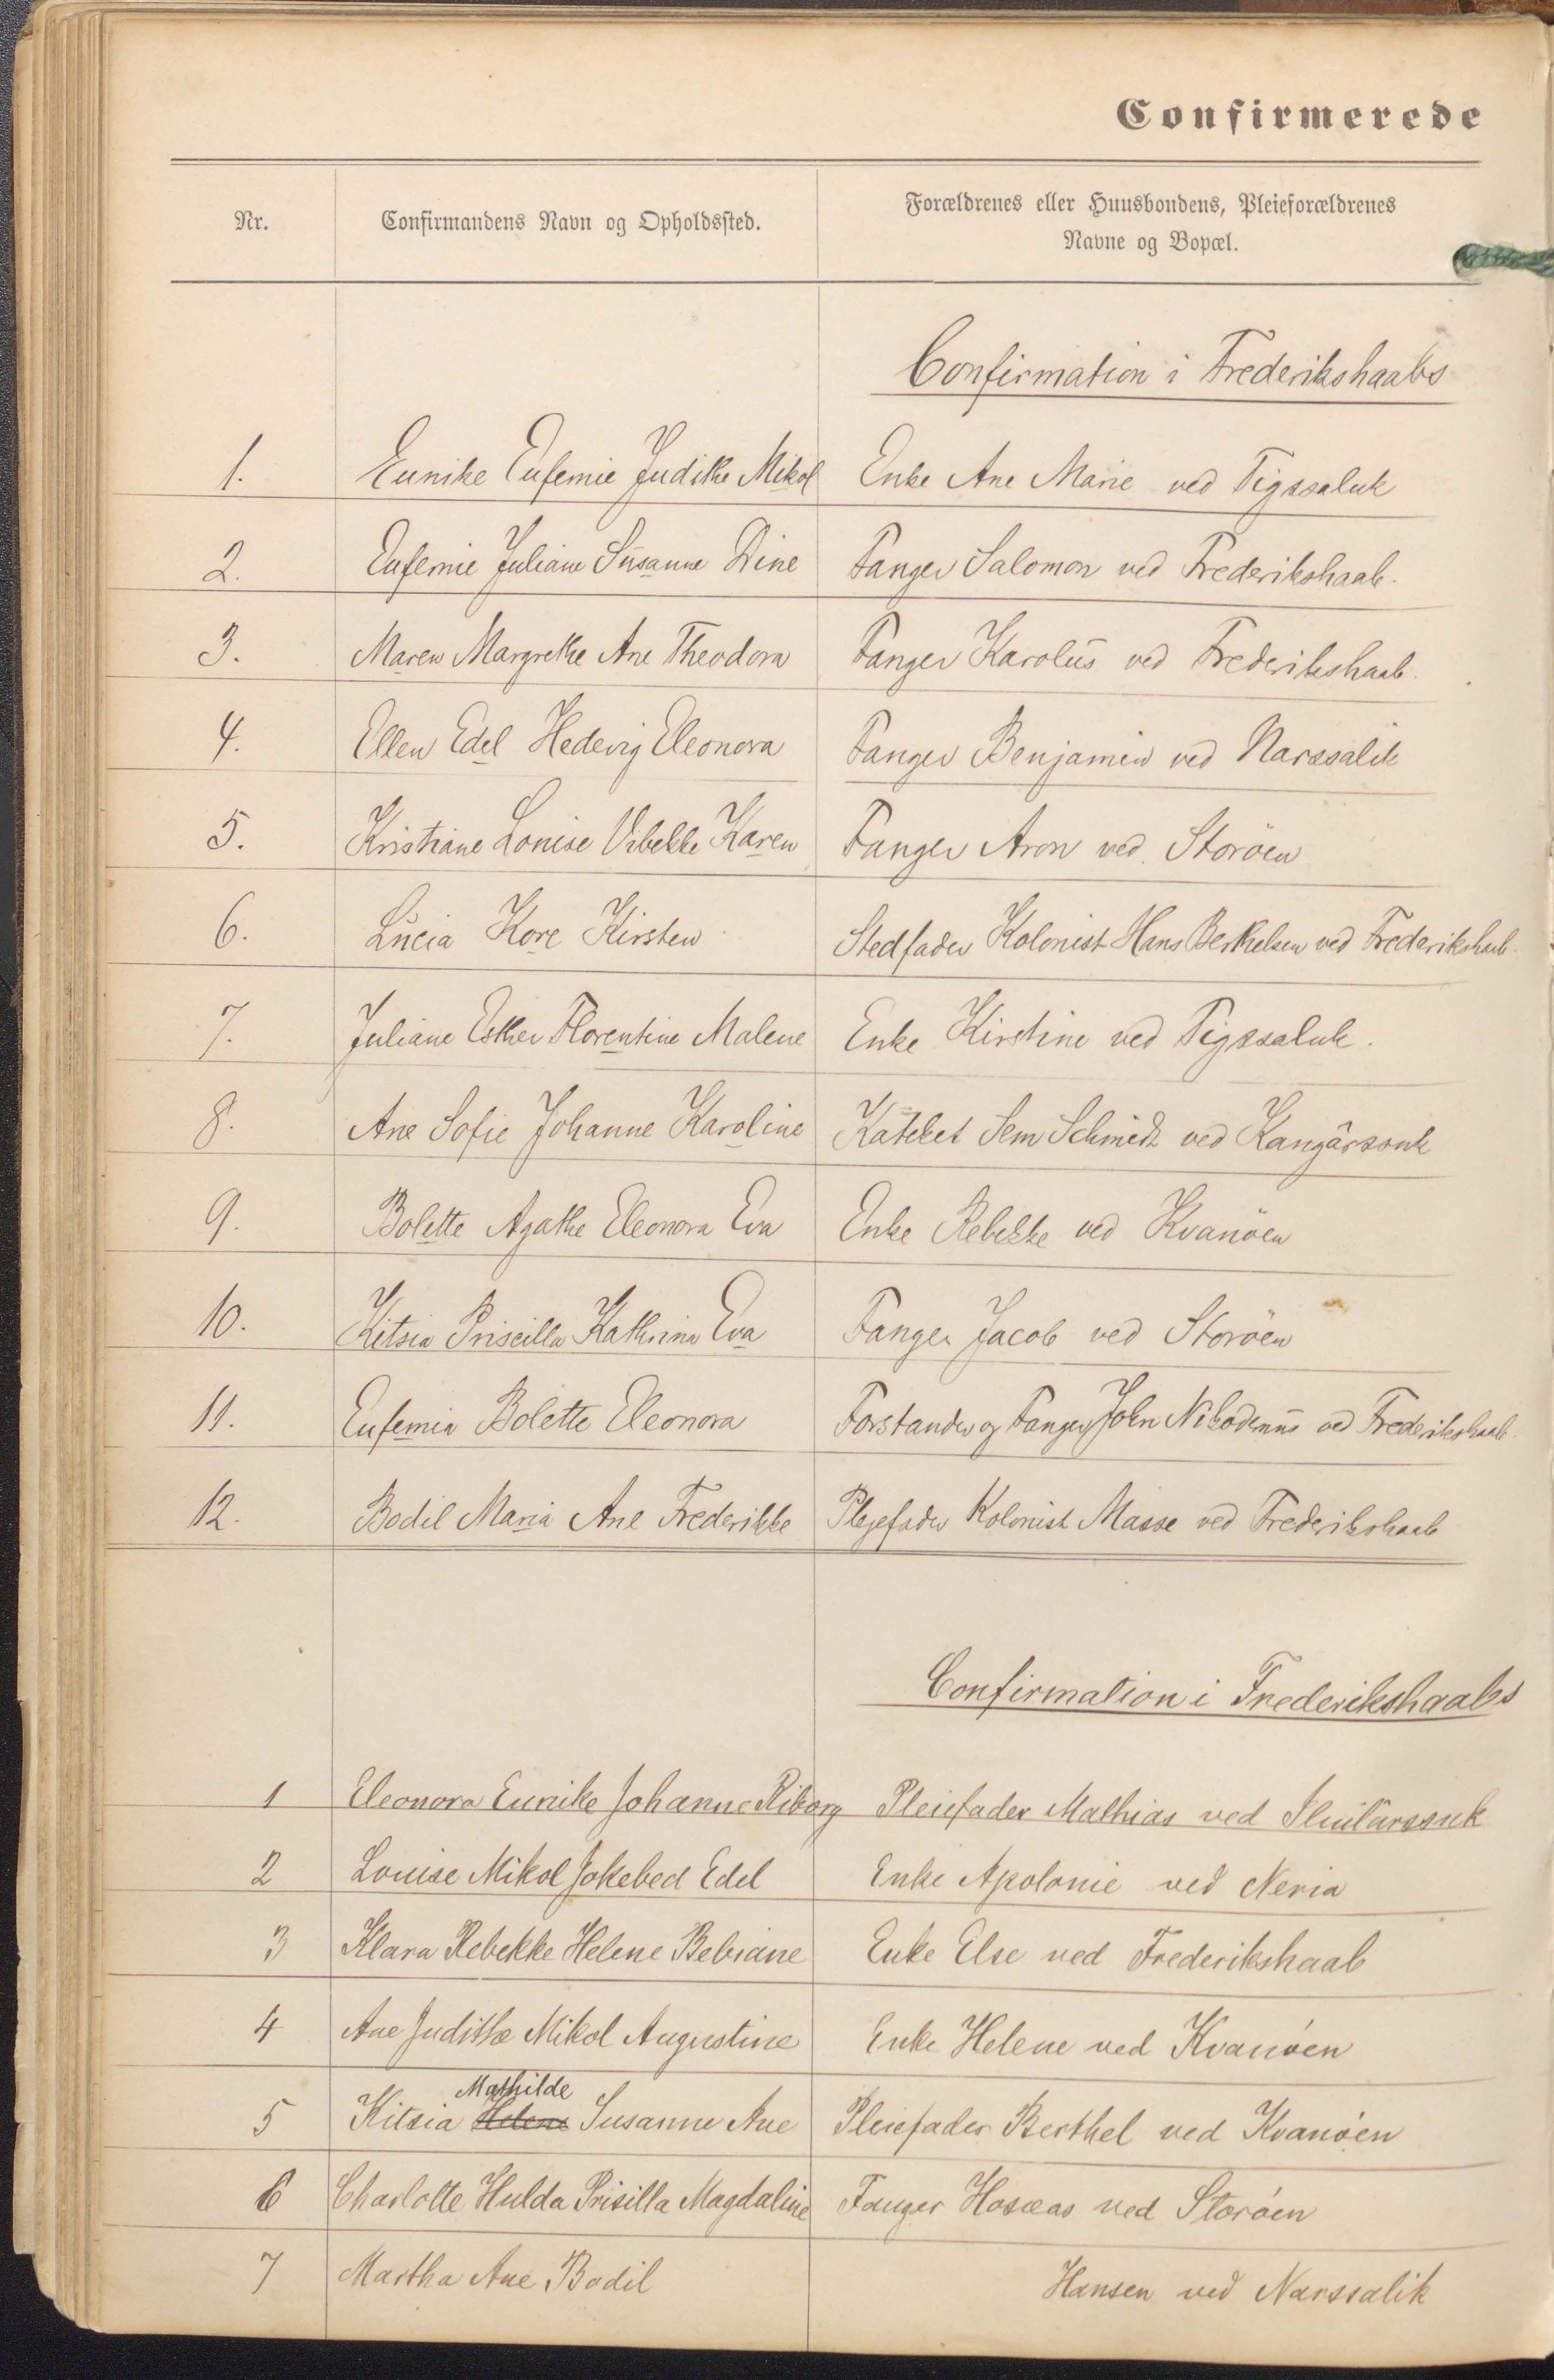 Confirmerede
Nr. Confirmandens Navn og Opholdssted. Forældrenes eller Huusbondens, Pleieforældrenes
Navne og Bopæl.
Confirmation i Frederikshaabs
1. Eunike Eufemie Judithe Mikol Enke Ane Marie ved Tigssaluk
2. Eufemie Juliane Susanne Dine Fanger Salomon ved Frederikshaab.
3. Maren Margrethe Ane Theodora Fanger Karolus ved Frederikshaab.
4. Ellen Edel Hedevig Eleonora Fanger Benjamin ved Narssalik
5. Kristiane Lonise Vibekke Karen Fanger Aron ved Storöen
6. Lucia Kore Kirsten Stedfader Kolonist Hans Berthelsen ved Frederikshaab.
7. Juliane Esther Florentine Malene Enke Kirstine ved Tigssaluk.
8. Ane Sofie Johanne Karoline Kateket Sem Schmidt ved Kangârssuk
9. Bolette Agathe Eleonora Eva Enke Rebekke ved Kvanöen
10. Kitsia Priscilla Kathrina Eva Fanger Jacob ved Storöen
11. Eufemia Bolette Eleonora Forstander og Fanger John Nikodemus ved Frederikshaab.
12. Bodil Maria Ane Frederikke Plejefader Kolonist Masse ved Frederikshaab
Confirmation i Frederikshaabs
1 Eleonora Eunike Johanne Riborg Pleiefader Mathias ved
2 Louise Mikol Jokebed Edel Enke Apolonie ved Neria
3 Klara Rebekke Helene Bebiane Enke Else ved Frederikshaab
4 Ane Judithe Mikol Augustine Enke Helene ved Kvanöen
Mathilde
5 Kitsia Helene Susanne Ane Pleiefader Berthel ved Kvanöen
6 Charlotte Hulda Prisilla Magdaline Fanger Hosæas ved Storöen
7 Martha Ane Bodil Hansen ved Narssalik